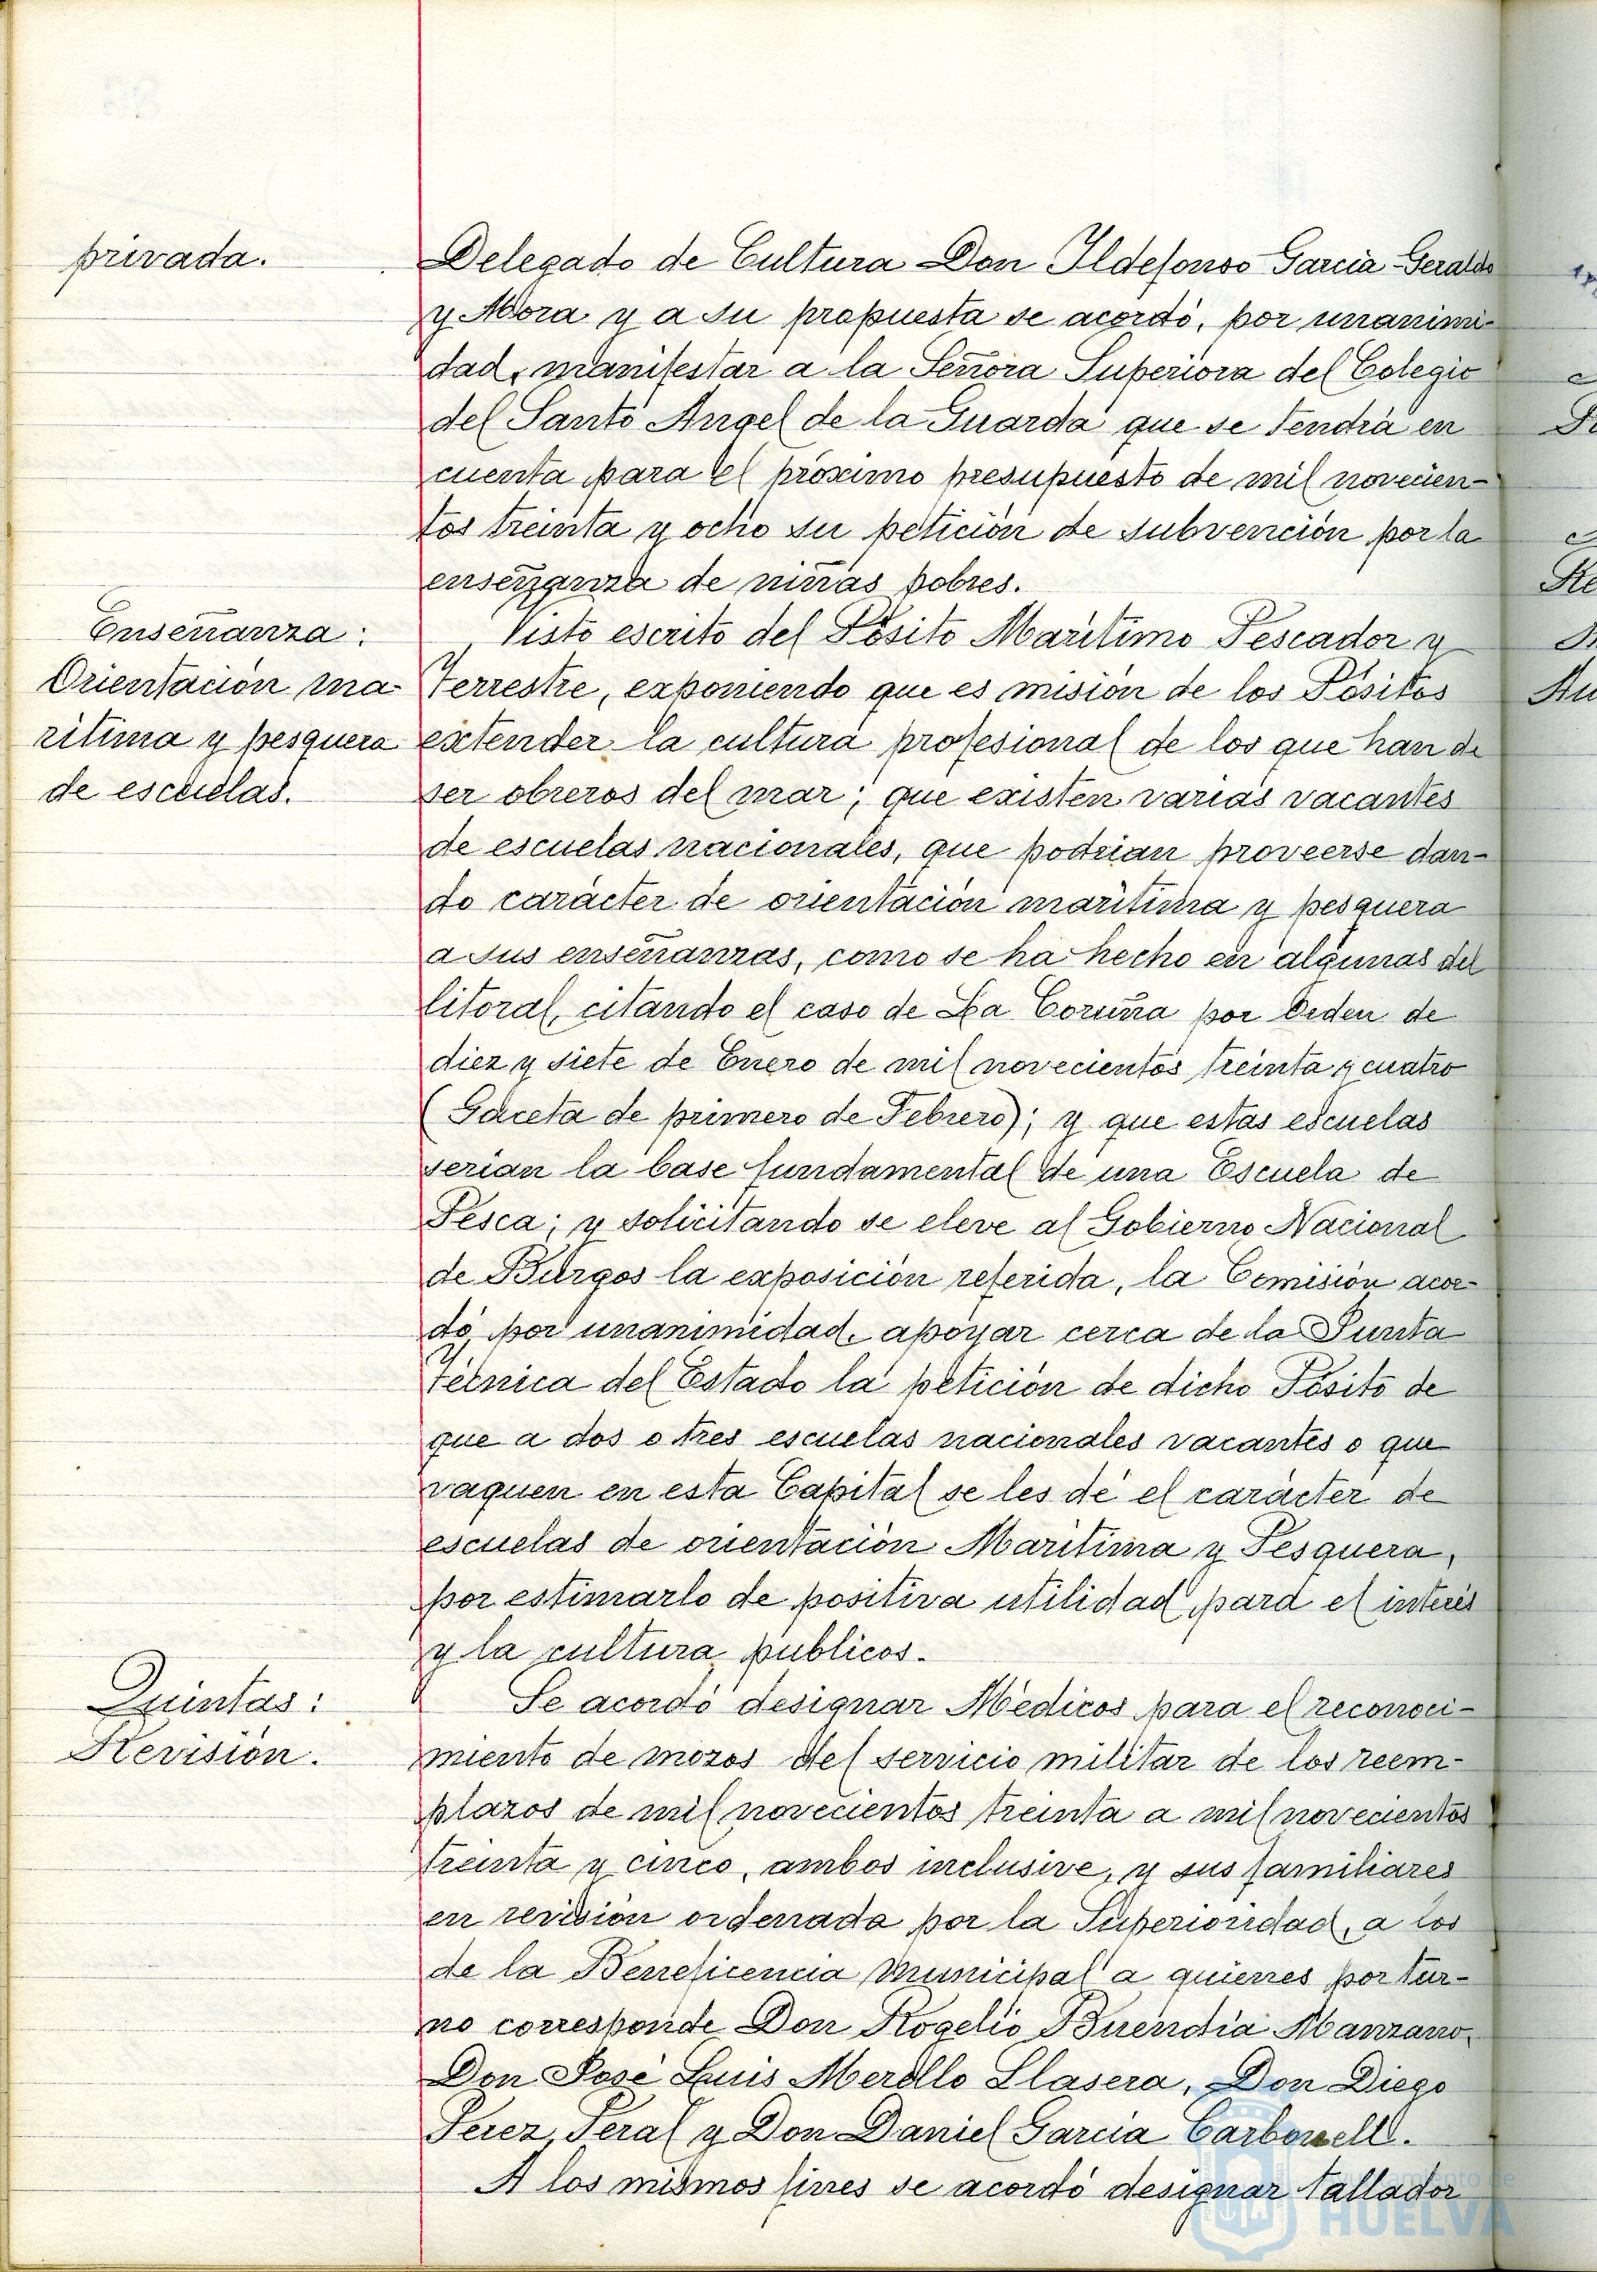 privada.
Delegado de Cultura Don Ildefonso Garcia Geraldo
y Mora y a su propuesta se acordó, por unanimi-
dad, manifestar a la Señora Superiora del Colegio
del Santo Angel de la Guarda que se tendrá en
cuenta para el próximo presupuesto de mil novecien-
tos treinta y ocho su petición de subvención por la
enseñanza de niñas pobres.
Enseñanza:
Orientación ma-
ritima y pesquera
de escuelas.
Visto escrito del Pósito Maritimo Pescador y
Terrestre, exponiendo que es misión de los Pósitos
extender la cultura profesional de los que han de
ser obreros del mar; que existen varias vacantes
de escuelas nacionales, que podrian proveerse dan-
do carácter de orientación maritima y pesquera
a sus enseñanzas, como se ha hecho en algunas del
litoral, citando el caso de La Coruña por Orden de
diez y siete de Enero de mil novecientos treinta y cuatro
(Gaceta de primero de Febrero); y que estas escuelas
serian la base fundamental de una Escuela de
Pesca; y solicitando se eleve al Gobierno Nacional
de Burgos la exposición referida, la Comisión acor-
dó, por unanimidad, apoyar cerca de la Junta
Técnica del Estado la petición de dicho Pósito de
que a dos o tres escuelas nacionales vacantes o que
vaquen en esta Capital se les dé el carácter de
escuelas de orientación Maritima y Pesquera,
por estimarlo de positiva utilidad para el interés
y la cultura publicos.
Quintas:
Revisión.
Se acordó designar Médicos para el reconoci-
miento de mozos del servicio militar de los reem-
plazos de mil novecientos treinta a mil novecientos
treinta y cinco, ambos inclusive, y sus familiares
en revisión ordenada por la Superioridad, a los
de la Beneficencia Municipal a quienes por tur-
no corresponde Don Rogelio Buendia Manzano,
Don José Luis Merello Llasera, Don Diego
Perez Peral y Don Daniel Garcia Carbonell.
A los mismos fines se acordó designar tallador
Ayuntamiento de
HUELVA